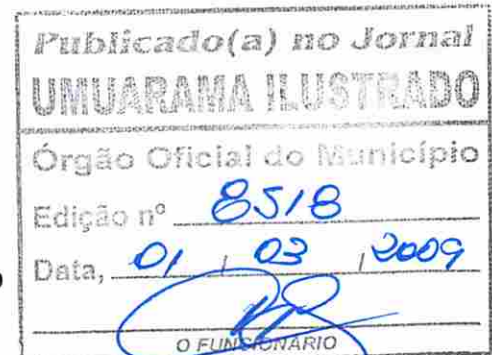 Publicado(a) no Jornal
UMUARAMA ILUSTRADO
Órgão Oficial do Município
Edição nº 8518
Data, 01 / 03 / 2009
O FUNCIONÁRIO